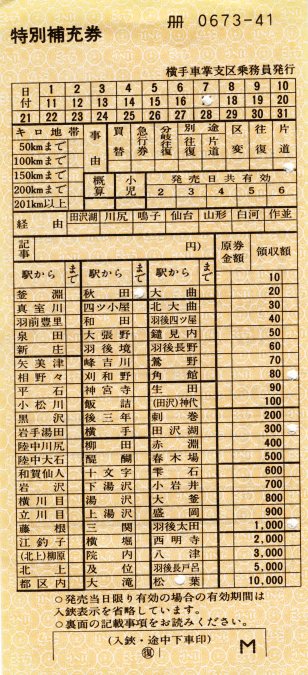 冊 0673-41
特別補充券
横手車掌支区乗務員発行
日付 1 2 3 4 5 6 7 8 9 10
11 12 13 14 15 16 18 19 20
21 22 23 24 25 26 27 28 29 30 31
キロ地帯 事由 買替 急行券 分岐往復 別途往復 途片道 区変 往復 片道
50kmまで
100kmまで
150kmまで 概算 小児 発売日共有効
200kmまで 2 3 4 5 6
201km以上
経由 田沢湖 川尻 鳴子 仙台 山形 白河 作並
記事 円) 原券金額 領収額
駅から まで 駅から まで 駅から まで 10
釜淵 秋田 大曲 20
真室川 四ツ小屋 北大曲 30
羽前豊里 和田 羽後四ツ屋 40
泉田 大張野 鑓見内 50
新庄 羽後境 羽後長野 60
矢美津 峰吉川 鶯野 70
相野々 刈和野 角館 80
平石 神宮寺 生田 90
小松川 飯詰 (田沢)神代 100
黒沢 後三年 刺巻 200
岩手湯田 横手 田沢湖 300
陸中川尻 柳田 赤渕 400
陸中大石 醍醐 春木場 500
和賀仙人 十文字 雫石 600
岩沢 下湯沢 小岩井 700
横川目 湯沢 大釜 800
立川目 上湯沢 盛岡 900
藤根 三関 羽後太田 1,000
江釣子 横堀 西明寺 2,000
(北上)柳原 院内 八津 3,000
北上 及位 羽後長戸呂 5,000
都区内 大滝 松葉 10,000
○発売当日限り有効の場合の有効期間は
入鋏表示を省略しています。
○裏面の記載事項をお読みください。
(入鋏・途中下車印)
復 M